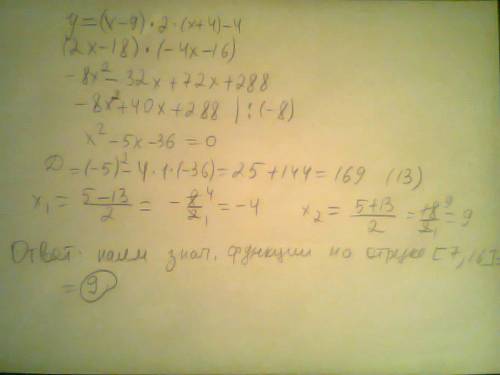 y=(x-9)·2·(x+4)-4
(2x-18)·(-4x-16)
-8x²-32x+72x+288
-8x²+40x+288 |:(-8)
x²-5x-36=0
D=(-5)²-4·1·(-36)=25+144=169 (13)
x₁=(5-13)/2=-8/2=-4 x₂=(5+13)/2=18/2=9
Ответ: наим знач. функции на отрезке [7;16]
=9